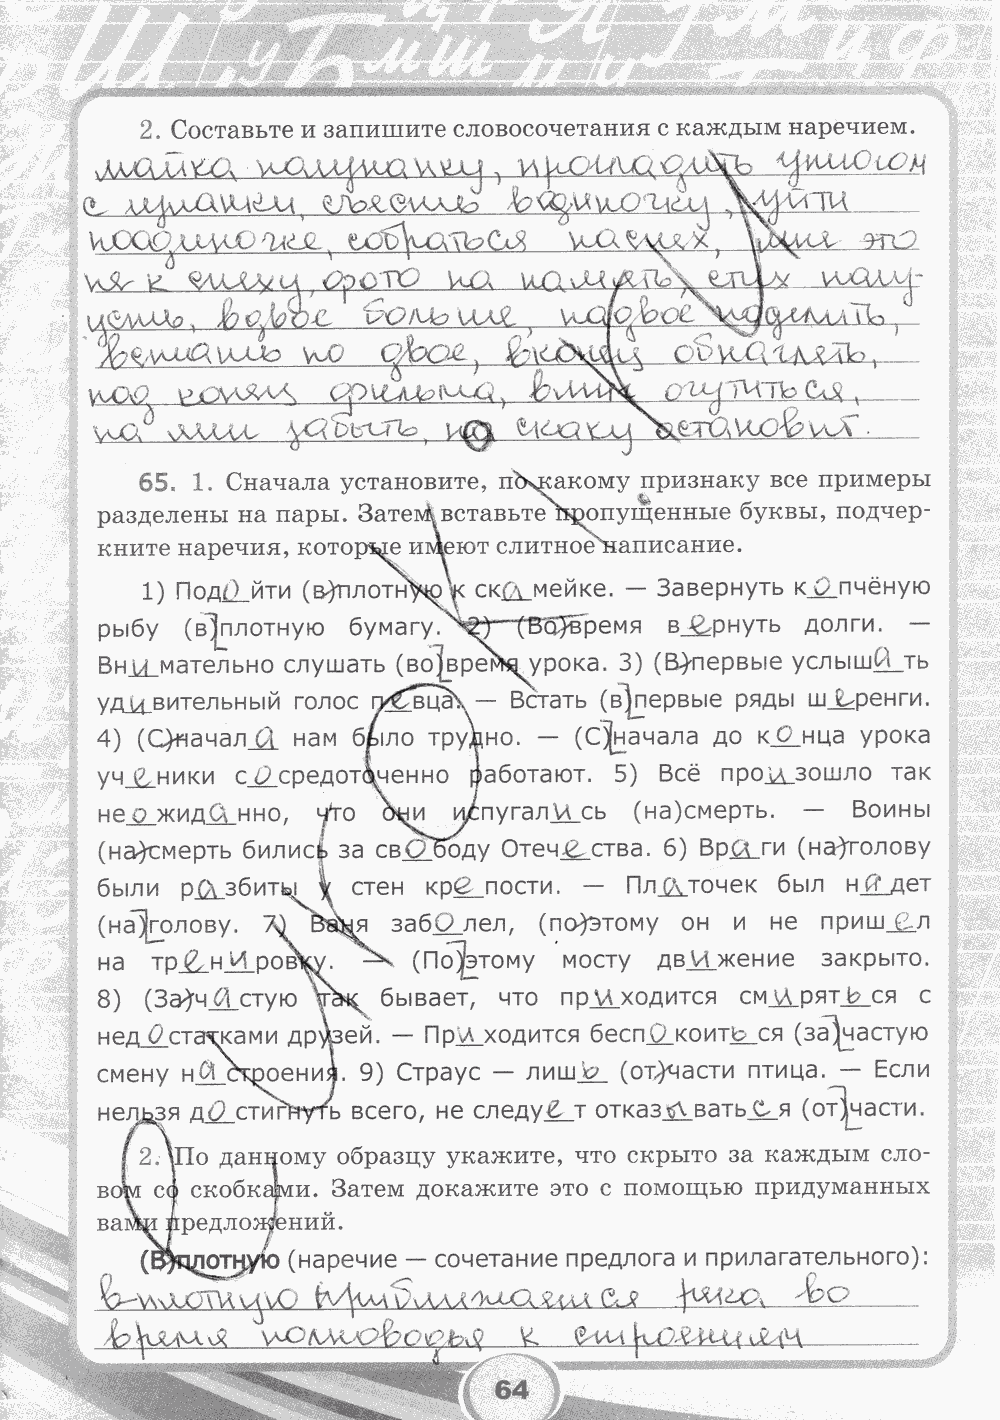 2. Составьте и запишите словосочетания с каждым наречием.
майка наизнанку, прогладить утюгом
с изнанки, съесть в одиночку, уйти
поодиночке, собраться наспех, мне это
не к спеху, фото на память, стих наизусть,
вдвое больше, надвое поделить,
встать по двое, вконец обнаглеть,
под конец фильма, вмиг очутиться,
на миг забыть, на скаку остановит.
65. 1. Сначала установите, по какому признаку все примеры
разделены на пары. Затем вставьте пропущенные буквы, подчер-
кните наречия, которые имеют слитное написание.
1) Подойти (в)плотную к скамейке. — Завернуть копчёную
рыбу (в)плотную бумагу. 2) (Во)время вернуть долги. —
Внимательно слушать (во)время урока. 3) (В)первые услышать
удивительный голос певца. — Встать (в)первые ряды шеренги.
4) (С)начала нам было трудно. — (С)начала до конца урока
ученики сосредоточенно работают. 5) Всё произошло так
неожиданно, что они испугались (на)смерть. — Воины
(на)смерть бились за свободу Отечества. 6) Враги (на)голову
были разбиты у стен крепости. — Платочек был надет
(на)голову. 7) Ваня заболел, (по)этому он и не пришел
на тренировку. — (По)этому мосту движение закрыто.
8) (За)частую так бывает, что приходится смиряться с
недостатками друзей. — Приходится беспокоиться (за)частую
смену настроения. 9) Страус — лишь (от)части птица. — Если
нельзя достигнуть всего, не следует отказываться (от)части.
2. По данному образцу укажите, что скрыто за каждым сло-
вом со скобками. Затем докажите это с помощью придуманных
вами предложений.
(В)плотную (наречие — сочетание предлога и прилагательного):
вплотную приближается река во
время половодья к строениям
64